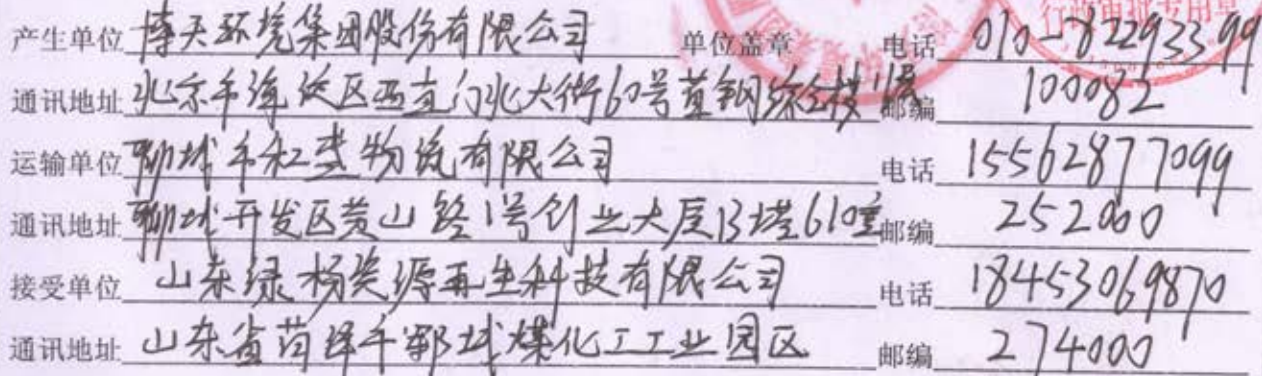 产生单位 博天环境集团股份有限公司 单位盖章 电话 010-82293399
通讯地址 北京市海淀区西直门北大街60号首钢综合楼11层 邮编 100082
运输单位 聊城市和 物流有限公司 电话 15562877099
通讯地址 聊城开发区黄山路1号创业大厦B塔610室 邮编 252000
接受单位 山东绿杨资源再生科技有限公司 电话 18453069870
通讯地址 山东省菏泽市郓城煤化工工业园区 邮编 274000
行政审批专用章